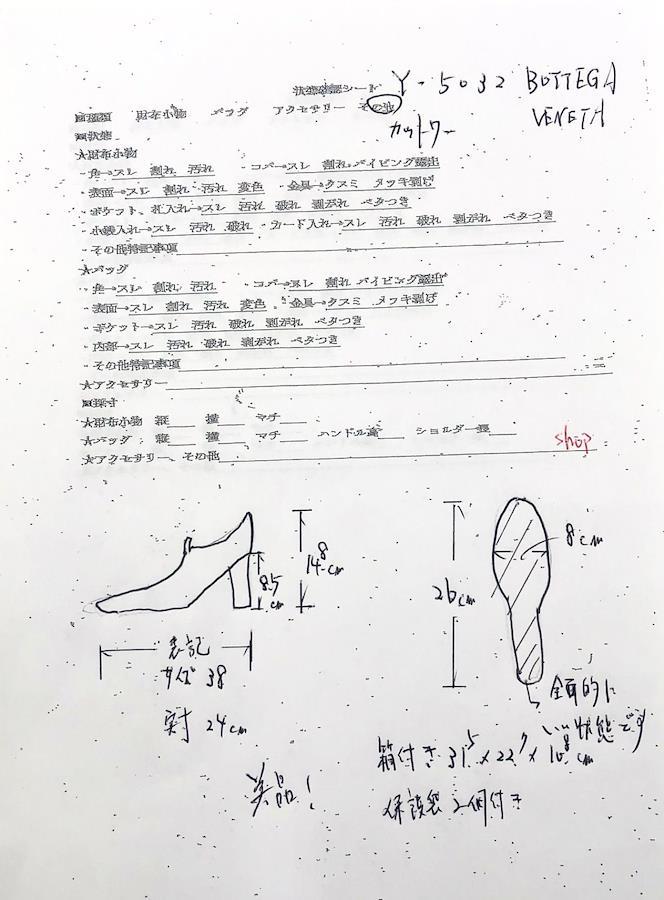 状態確認シート Y-5032 BOTTEGA
VENETA
■種類 財布小物 バッグ アクセサリー その他
カットワー
■状態
★財布小物
・角→スレ 割れ 汚れ ・コバ→スレ 割れ パイピング露出
・表面→スレ 割れ 汚れ 変色 ・金具→クスミ メッキ剥げ
・ポケット、札入れ→スレ 汚れ 破れ 剥がれ ベタつき
・小銭入れ→スレ 汚れ 破れ ・カード入れ→スレ 汚れ 破れ 剥がれ ベタつき
・その他特記事項
★バッグ
・角→スレ 割れ 汚れ ・コバ→スレ 割れ パイピング露出
・表面→スレ 割れ 汚れ 変色 ・金具→クスミ メッキ剥げ
・ポケット→スレ 汚れ 破れ 剥がれ ベタつき
・内部→スレ 汚れ 破れ 剥がれ ベタつき
・その他特記事項
★アクセサリー
■採寸
★財布小物 縦 横 マチ
★バッグ 縦 横 マチ ハンドル高 ショルダー長
shop
★アクセサリー、その他
14.8cm
8.5cm
8cm
26cm
表記
サイズ 38
実寸 24cm
全面的に
いい状態です
箱付き 31.5×22.7×10.8cm
保護袋2個付き
美品!